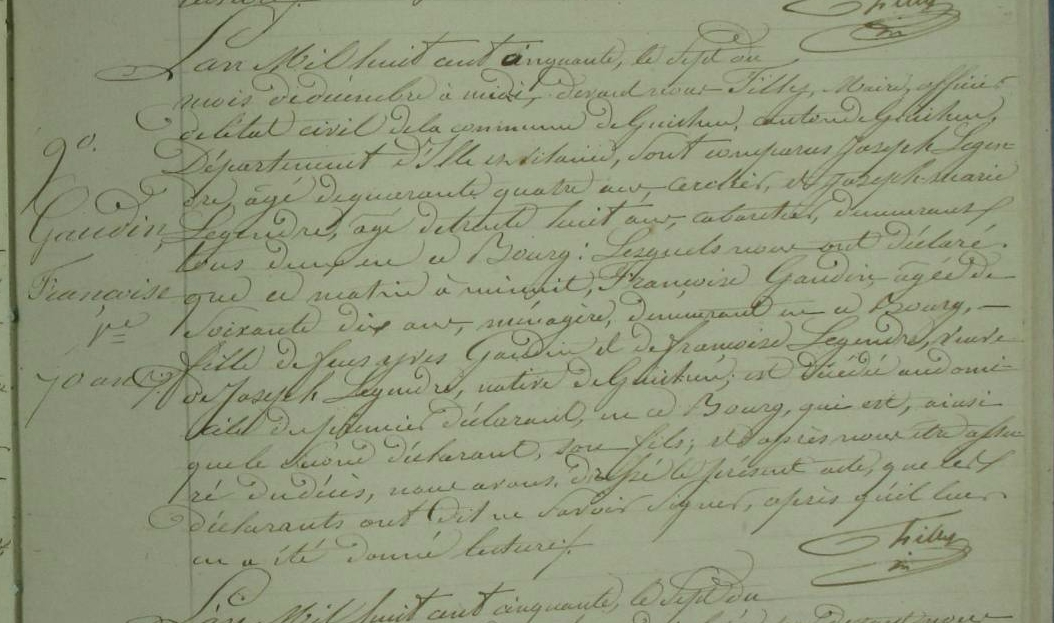 Tilly
L'an Mil huit cent cinquante, le sept du
mois de décembre à midi, devant nous Tilly, Maire, officier
de l'état civil de la commune de Guichen, canton de Guichen,
Département d'Ille et vilaine, sont comparus Joseph Legen-
dre, âgé de quarante quatre ans, et Joseph marie
Legendre, âgé de trente huit ans, cabaretier, demeurant
tous deux en ce Bourg: Lesquels nous ont déclaré
que ce matin à minuit, Françoise Gaudin, agée de
Soixante dix ans, ménagère, demeurant en ce Bourg, —
fille de feus yves Gaudin et de françoise Legendre, veuve
de Joseph Legendre, native de Guichen; est décédée au domi-
cile du premier déclarant, en ce Bourg, qui est, ainsi
que le second déclarant, son fils; et après nous être assu-
ré du décès, nous avons dressé le présent acte, que les
déclarants ont dit ne Savoir Signer, après qu'il leur
en a été donné lecture./.
90.
Gaudin,
Françoise
Ve
70 ans
Tilly
L'an Mil huit cent cinquante, le Sept du